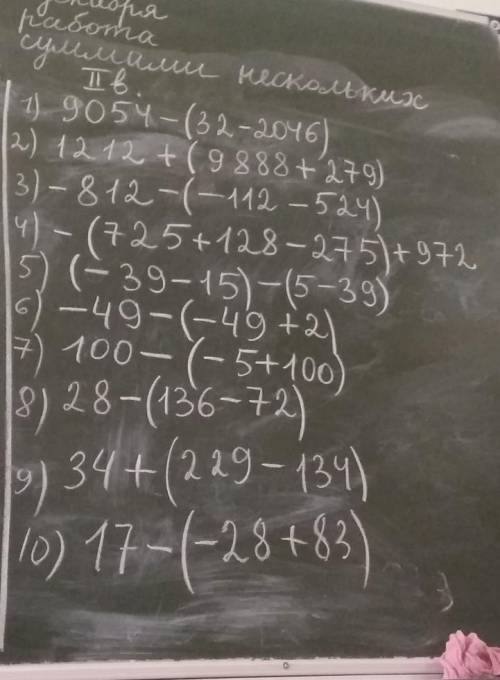 декабря
работа
суммами нескольких
II в.
1) 9054-(32-2046)
2) 1212+(9888+279)
3) -812-(-112-524)
4) -(725+128-275)+972
5) (-39-15)-(5-39)
6) -49-(-49+2)
7) 100-(-5+100)
8) 28-(136-72)
9) 34+(229-134)
10) 17-(-28+83)